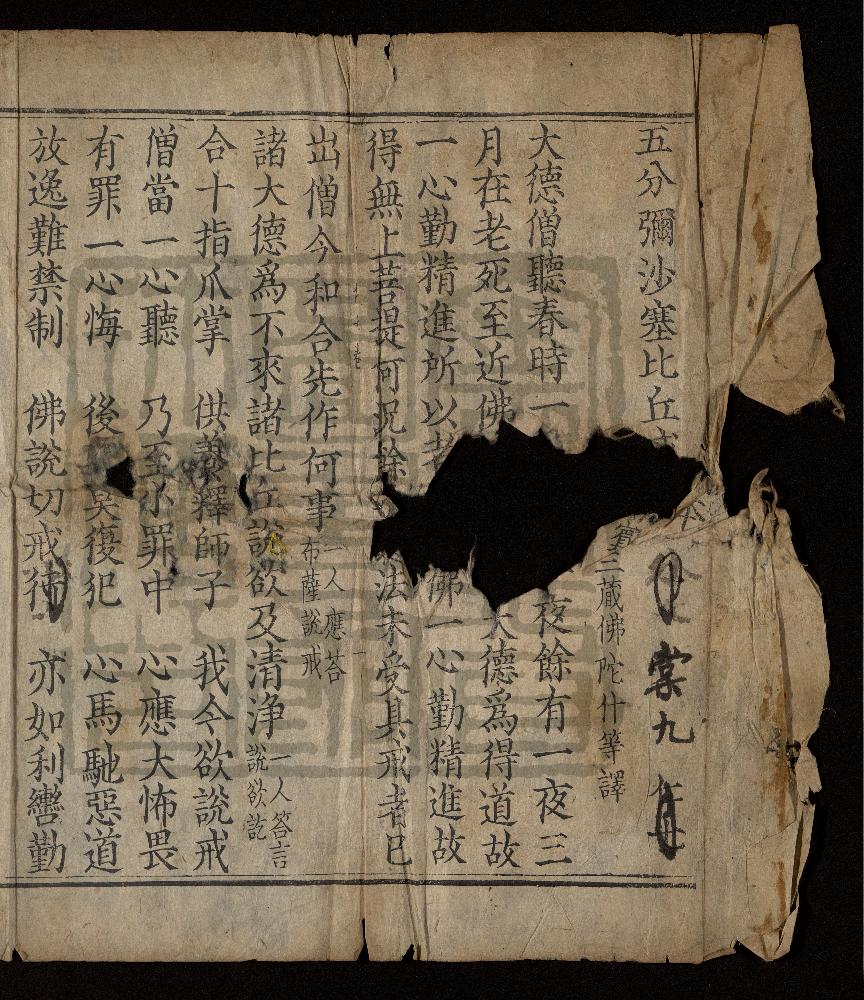 五分彌沙塞比丘
棠九
三藏佛陀什等譯
大德僧聽春時一夜餘有一夜三
月在老死至近佛大德爲得道故
一心勤精進所以者佛一心勤精進故
得無上菩提何況餘法未受具戒者已
出僧今和合先作何事一人應答布薩說戒
諸大德爲不來諸比丘說欲及清淨一人答言說欲訖
合十指爪掌　供養釋師子　我今欲說戒
僧當一心聽　乃至小罪中　心應大怖畏
有罪一心悔　後莫復犯　心馬馳惡道
放逸難禁制　佛說切戒行　亦如利轡勒